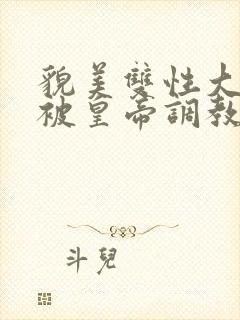 貌美雙性大
被皇帝調教
斗兒